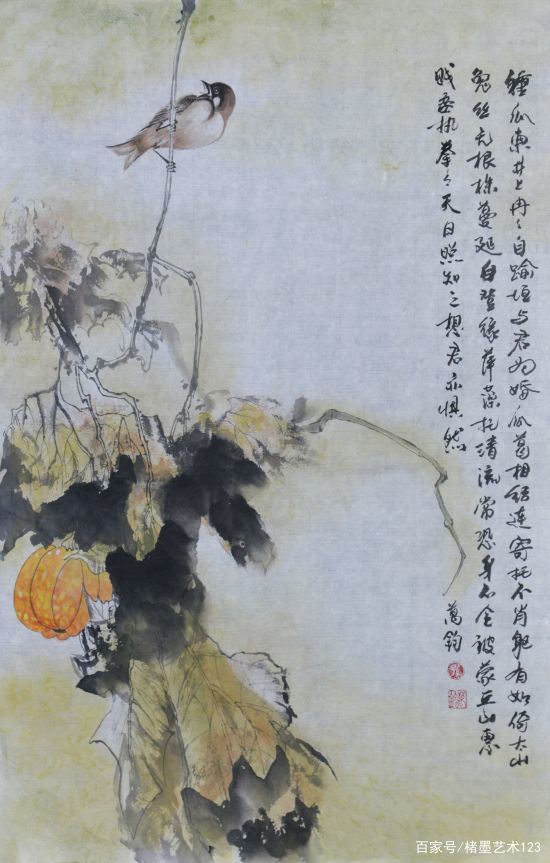 種瓜東井上冉々自踰垣与君为婚瓜葛相结連寄托不肖躯有如倚太山
兔丝无根株蔓延自登缘萍藻托清流常恐身不全被蒙丘山惠
贱妾执拳々天日照知之想君亦惧然
萬鈞
百家号/楮墨艺术123